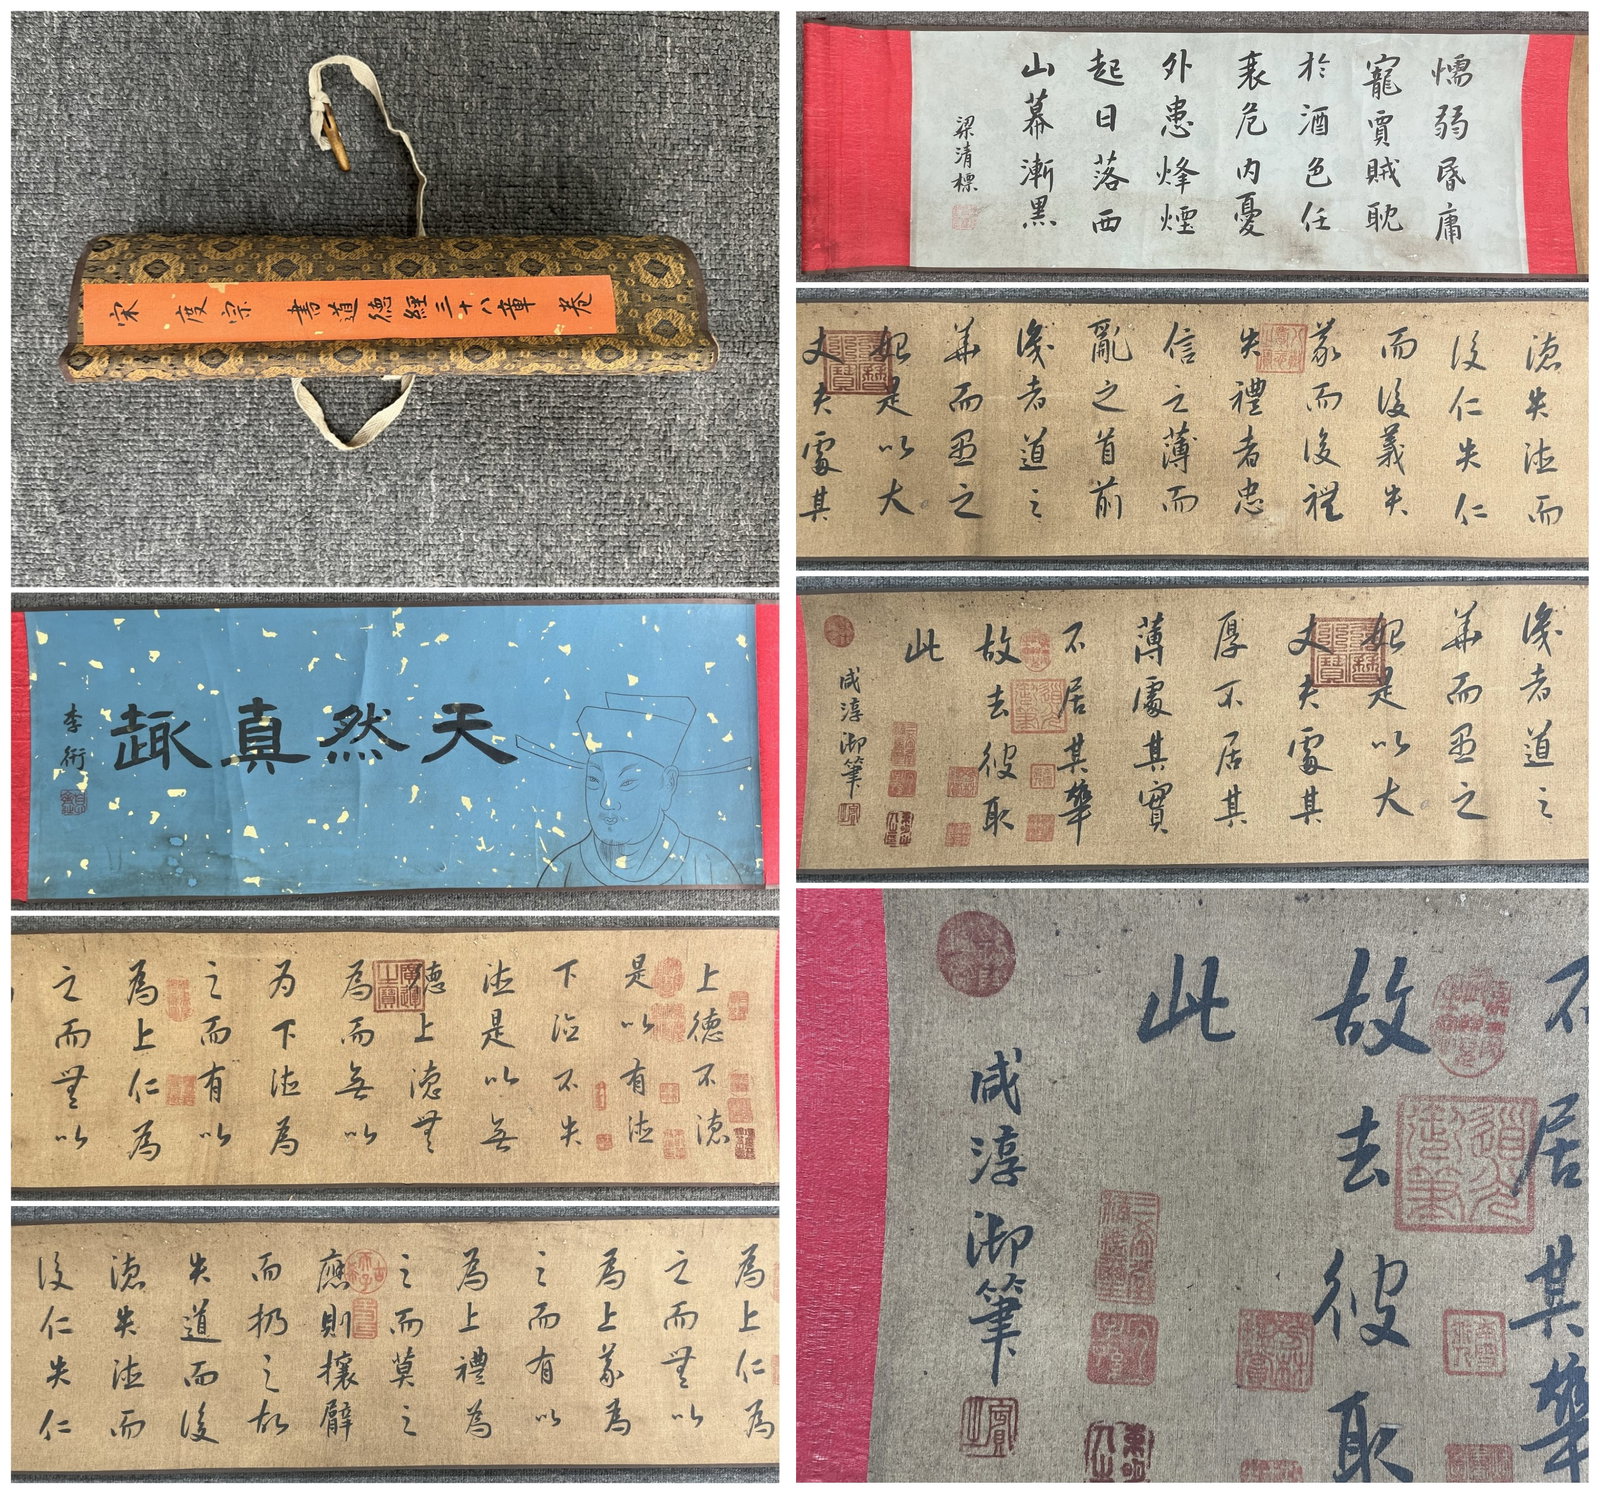 宋度宗書道德經三十八章卷
天然真趣
李衎
上德不德
是以有德
下德不失
德是以無
德上德無
為而無以
为下德為
之而有以
為上仁為
之而無以
為上仁為
之而無以
為上義為
之而有以
為上禮為
之而莫之
應則攘臂
而扔之故
失道而後
德失德而
後仁失仁
懦弱昏庸
寵賈賊耽
於酒色任
衰危内憂
外患烽煙
起日落西
山幕漸黑
梁清標
德失德而
後仁失仁
而後義失
義而後禮
失禮者忠
信之薄而
亂之首前
識者道之
華而愚之
始是以大
丈夫處其
識者道之
華而愚之
始是以大
丈夫處其
厚不居其
薄處其實
不居其華
故去彼取
此
咸淳御筆
不居其華
故去彼取
此
咸淳御筆